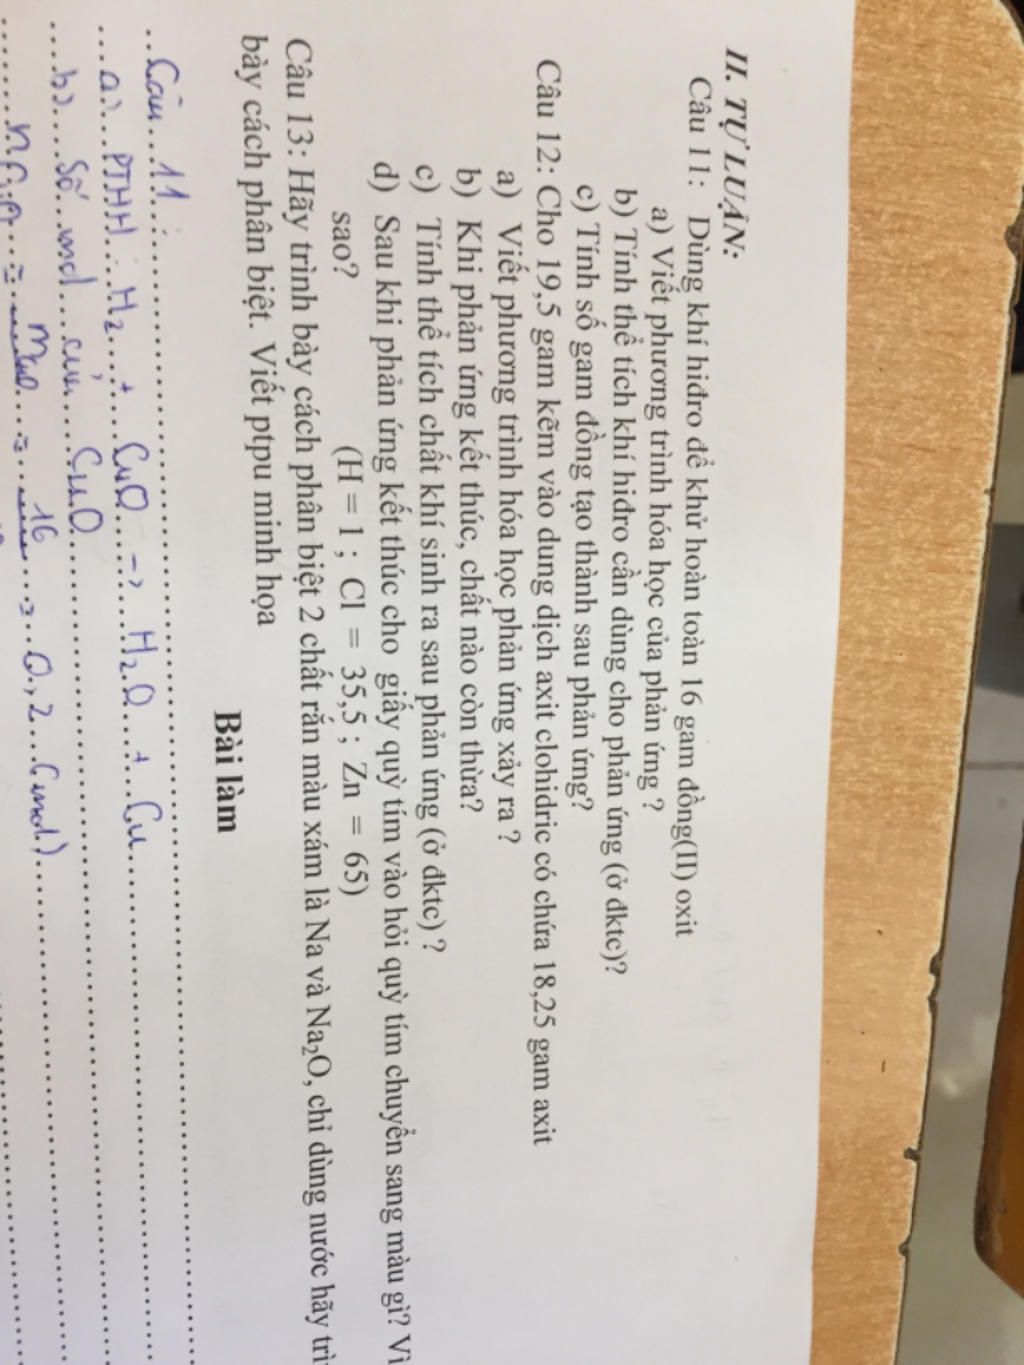 II. TỰ LUẬN:
Câu 11: Dùng khí hiđro để khử hoàn toàn 16 gam đồng(II) oxit
a) Viết phương trình hóa học của phản ứng ?
b) Tính thể tích khí hiđro cần dùng cho phản ứng (ở đktc)?
c) Tính số gam đồng tạo thành sau phản ứng?
Câu 12: Cho 19,5 gam kẽm vào dung dịch axit clohidric có chứa 18,25 gam axit
a) Viết phương trình hóa học phản ứng xảy ra ?
b) Khi phản ứng kết thúc, chất nào còn thừa?
c) Tính thể tích chất khí sinh ra sau phản ứng (ở đktc) ?
d) Sau khi phản ứng kết thúc cho giấy quỳ tím vào hỏi quỳ tím chuyển sang màu gì? Vì
sao? (H = 1 ; Cl = 35,5 ; Zn = 65)
Câu 13: Hãy trình bày cách phân biệt 2 chất rắn màu xám là Na và Na₂O, chỉ dùng nước hãy
bày cách phân biệt. Viết ptpu minh họa
Bài làm
Câu 11:
a) PTHH: H₂ + CuO -> H₂O + Cu
b) Số mol của CuO
nCuO = mCuO = 16 = 0,2 (mol)